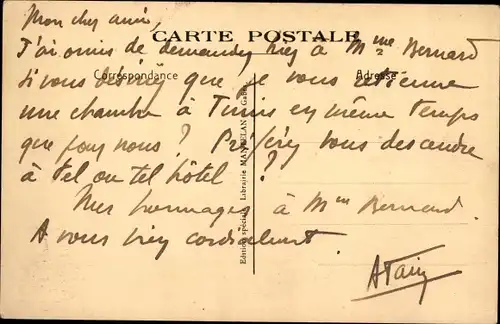 Mon cher ami,
CARTE POSTALE
J'ai omis de demander hier à Mme Bernard
Correspondance
Adresse
si vous désirez que je vous retienne
une chambre à Tunis en même temps
que pour nous ? Préférez vous descendre
à tel ou tel hôtel ?
Mes hommages à Mme Bernard.
A vous bien cordialement.
Edition spéciale Librairie